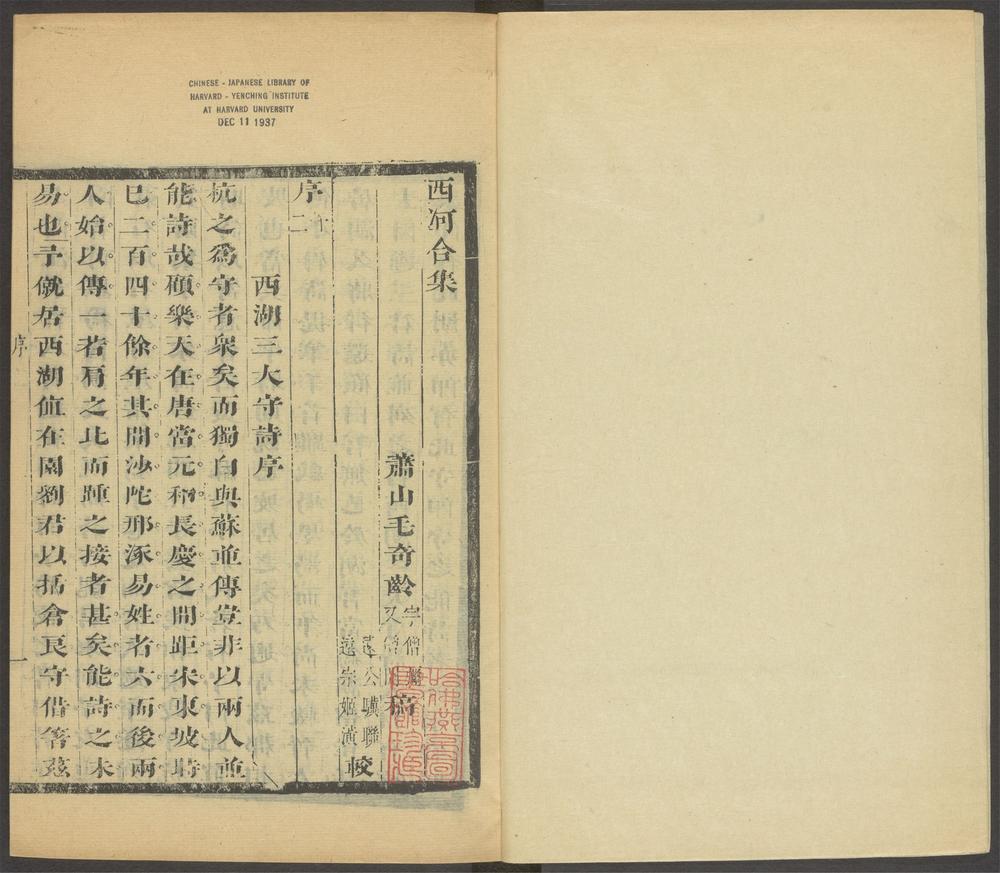 CHINESE - JAPANESE LIBRARY OF
HARVARD - YENCHING INSTITUTE
AT HARVARD UNIVERSITY
DEC 11 1937
西河合集
蕭山毛奇齡字僧 又 稿
遠公驥聯
遠宗姬潢 較
序二
西湖三太守詩序
杭之爲守者衆矣而獨白與蘇並傳豈非以兩人並
能詩哉顧樂天在唐當元和長慶之間距宋東坡時
已二百四十餘年其間沙陀邢涿易姓者六而後兩
人始以傳一若肩之比而踵之接者甚矣能詩之未
易也予僦居西湖値在園劉君以括倉良守借箸茲
序
一